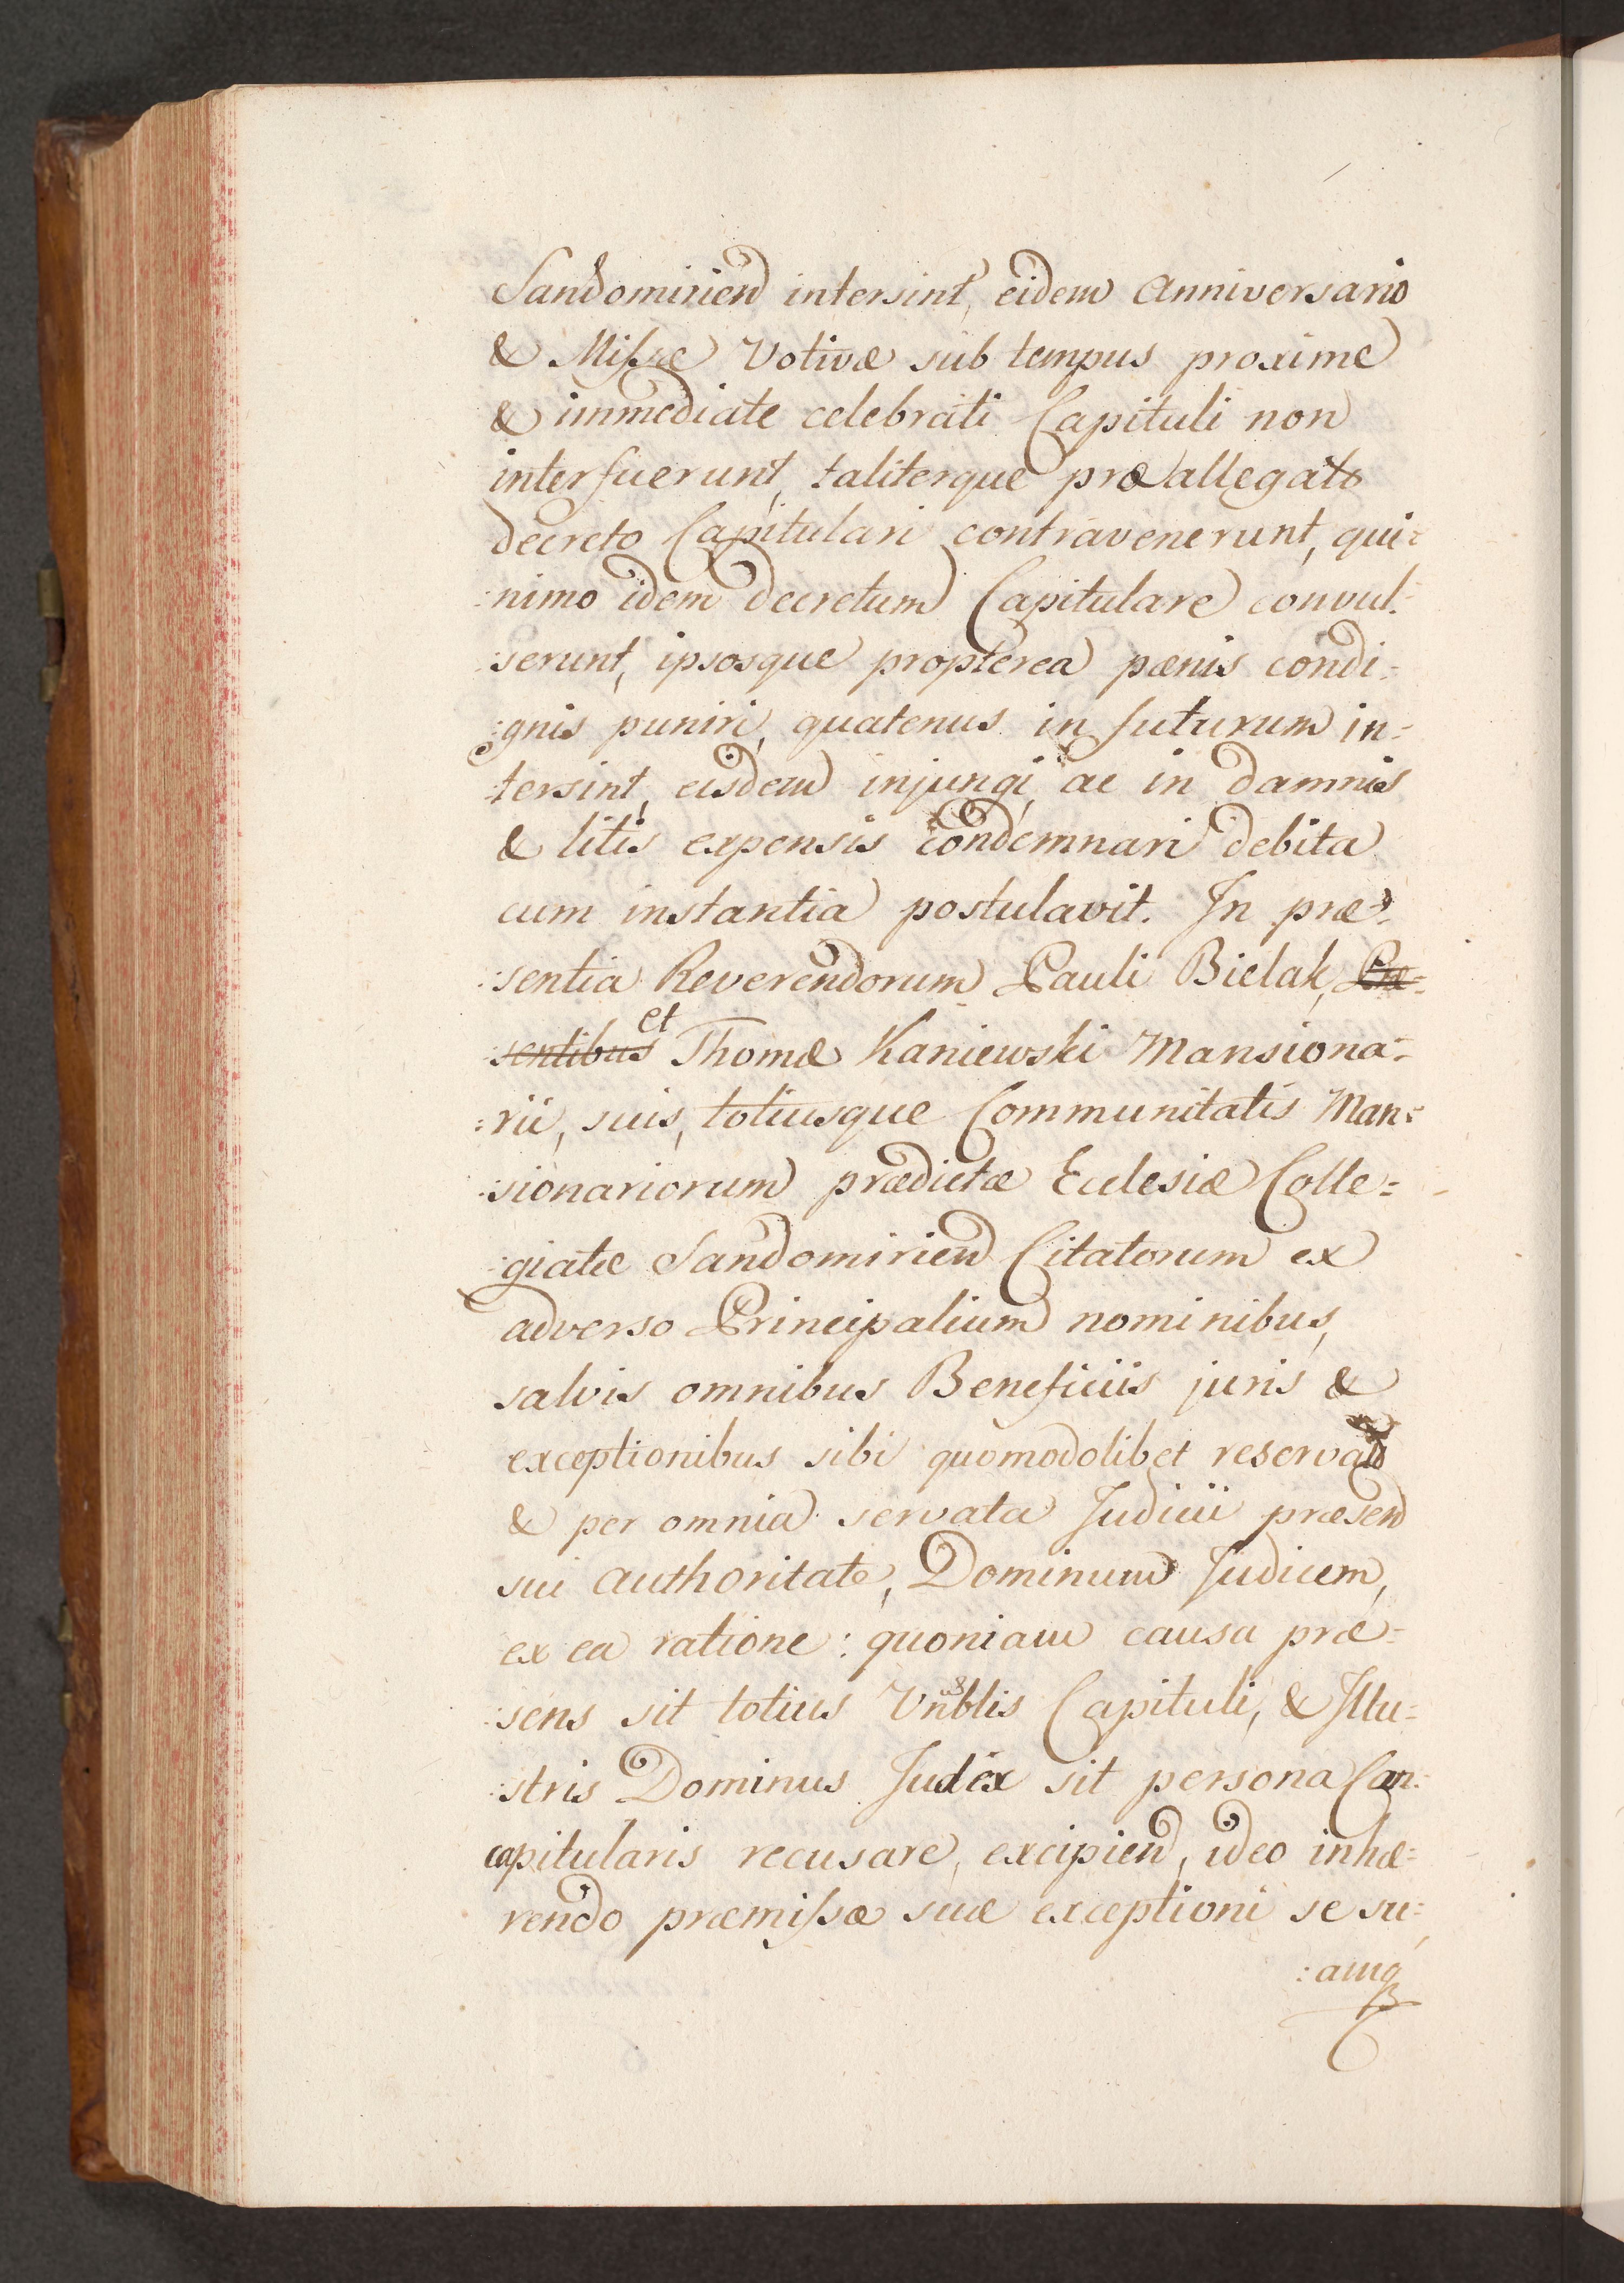 Sandomirien intersint, eidem Anniversario
& Missæ Votivæ sub tempus proxime
& immediate celebrati Capituli non
interfuerunt, taliterque præallegato
decreto Capitulari contravenerunt, qui=
:nimo idem decretum Capitulare convul=
:serunt, ipsosque propterea pœnis condi=
:gnis puniri, quatenus in futurum in=
:tersint, eisdem injungi, ac in damnis
& litis expensis condemnari debita
cum instantia postulavit. In præ=
:sentia Reverendorum Pauli Bielak, Præ=
:sentibus et Thomæ Kaniewski Mansiona=
:rii, suis, totiusque Communitatis Man=
:sionariorum prædictæ Ecclesiæ Colle=
:giatæ Sandomirien Citatorum ex
adverso Principalium nominibus,
salvis omnibus Beneficiis juris &
exceptionibus sibi quomodolibet reservatis
& per omnia servata Judicii præsen
sui authoritate, Dominum Judicem,
ex ea ratione: quoniam causa præ=
:sens sit totius Vnblis Capituli, & Illu=
:stris Dominus Judex sit persona Con=
capitularis recusare, excipien, ideo inhæ=
rendo præmissæ suæ exceptioni se su=
:amq